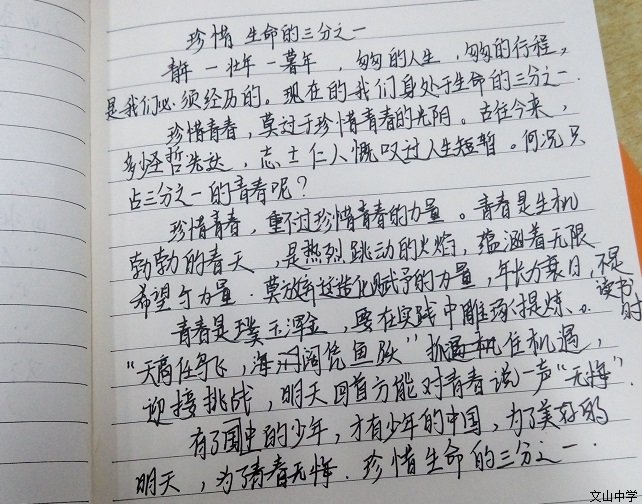 珍惜 生命的三分之一
青年一壮年一暮年，匆匆的人生，匆匆的行程，
是我们必须经历的。现在的我们身处于生命的三分之一.
珍惜青春，莫过于珍惜青春的光阴。古往今来，
多少圣哲先达，志士仁人慨叹过人生短暂。何况只
占三分之一的青春呢？
珍惜青春，重不过珍惜青春的力量。青春是生机
勃勃的春天，是热烈跳动的火焰，蕴涵着无限
希望与力量．莫放弃这造化赋予的力量，年长力衰日，不是
读书时
青春是璞玉浑金，要在实践中雕琢提炼。
“天高任鸟飞，海阔凭鱼跃”抓住机遇，
迎接挑战，明天回首方能对青春说一声“无悔”
有了国中的少年，才有少年的中国，为了美好的
明天，为了青春无悔．珍惜生命的三分之一．
文山中学